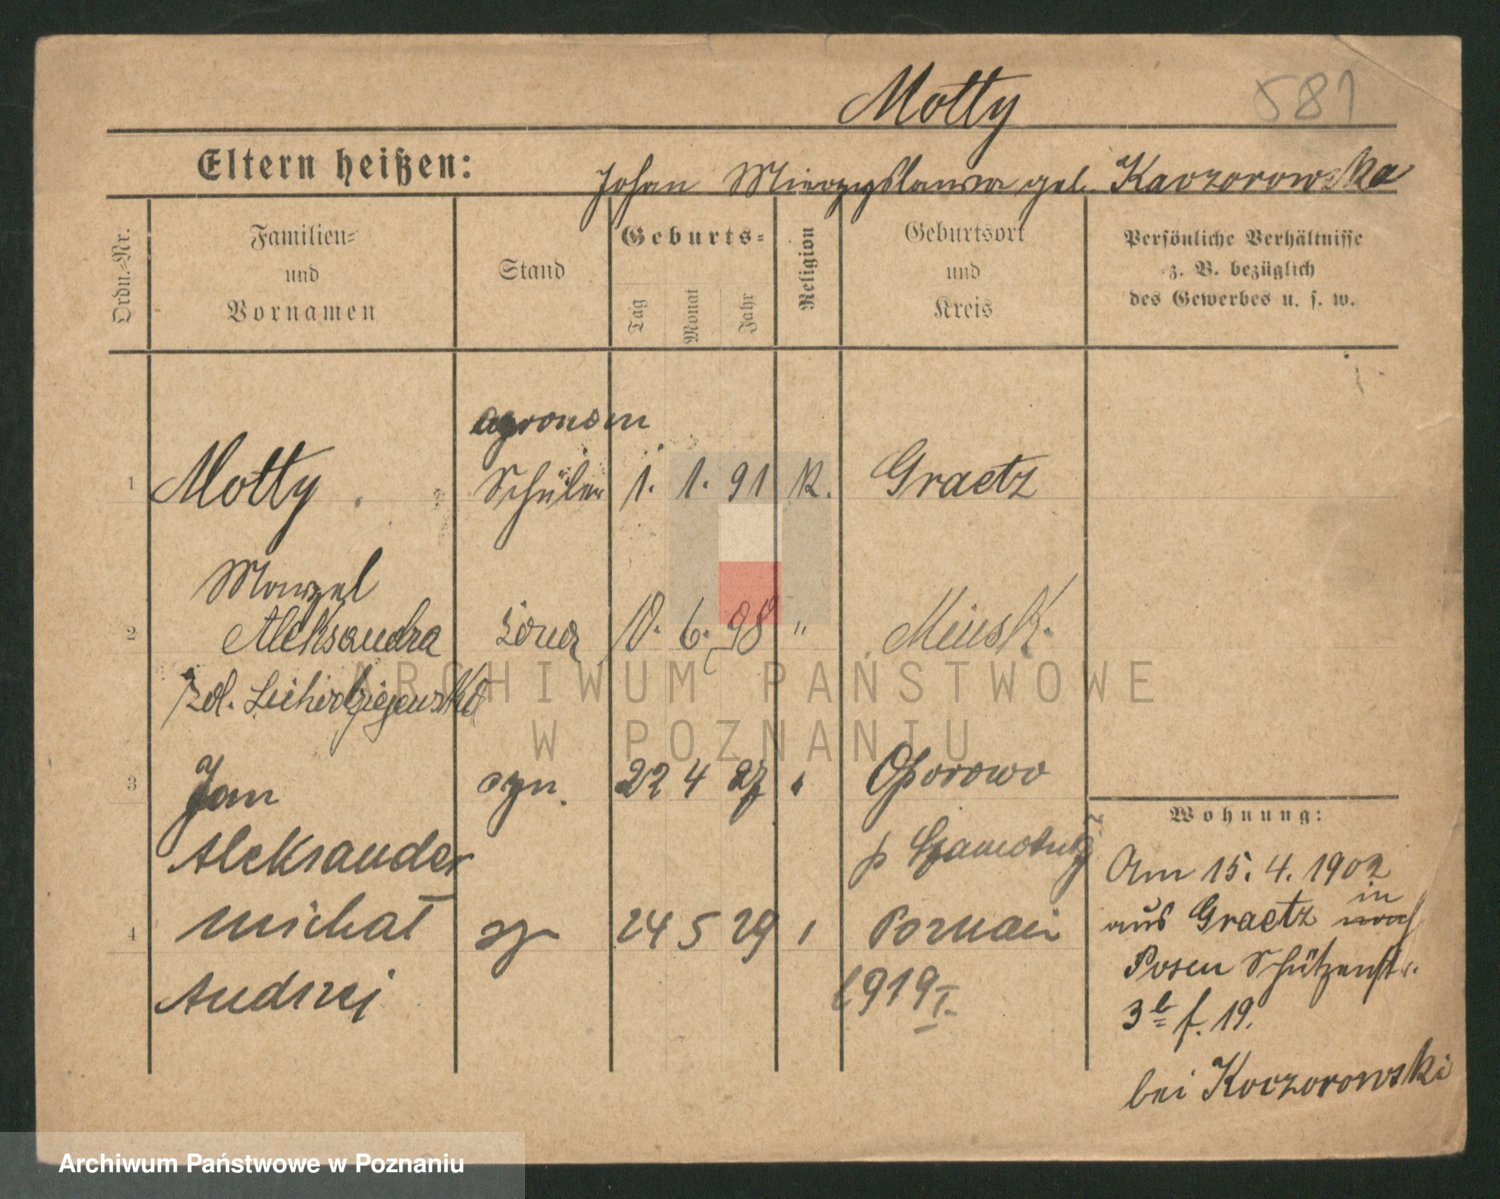 Motty 581
Eltern heißen: Johan Mieczyslawa geb. Kaczorowska
Ordn.-Nr.
Familien-
und
Vornamen
Stand
Geburts-
Tag
Monat
Jahr
Religion
Geburtsort
und
Kreis
Persönliche Verhältnisse
z. B. bezüglich
des Gewerbes u. s. w.
agronom
1 Motty Schüler 1. 1. 91 K. Graetz
Marzel
2 Aleksandra żona 10. 6. 98 " Minsk.
zd.
3 Jan syn. 22 4 27 Oporowo
Aleksander p Szamotuły
4 Michał sy 24 5 29 Poznań
Andrzej 1919 I.
Wohnung:
Am 15. 4. 1902
in
aus Graetz nach
Posen Schützenstr.
3 b f. 19.
bei Koczorowski
ARCHIWUM PAŃSTWOWE
W POZNANIU
Archiwum Państwowe w Poznaniu